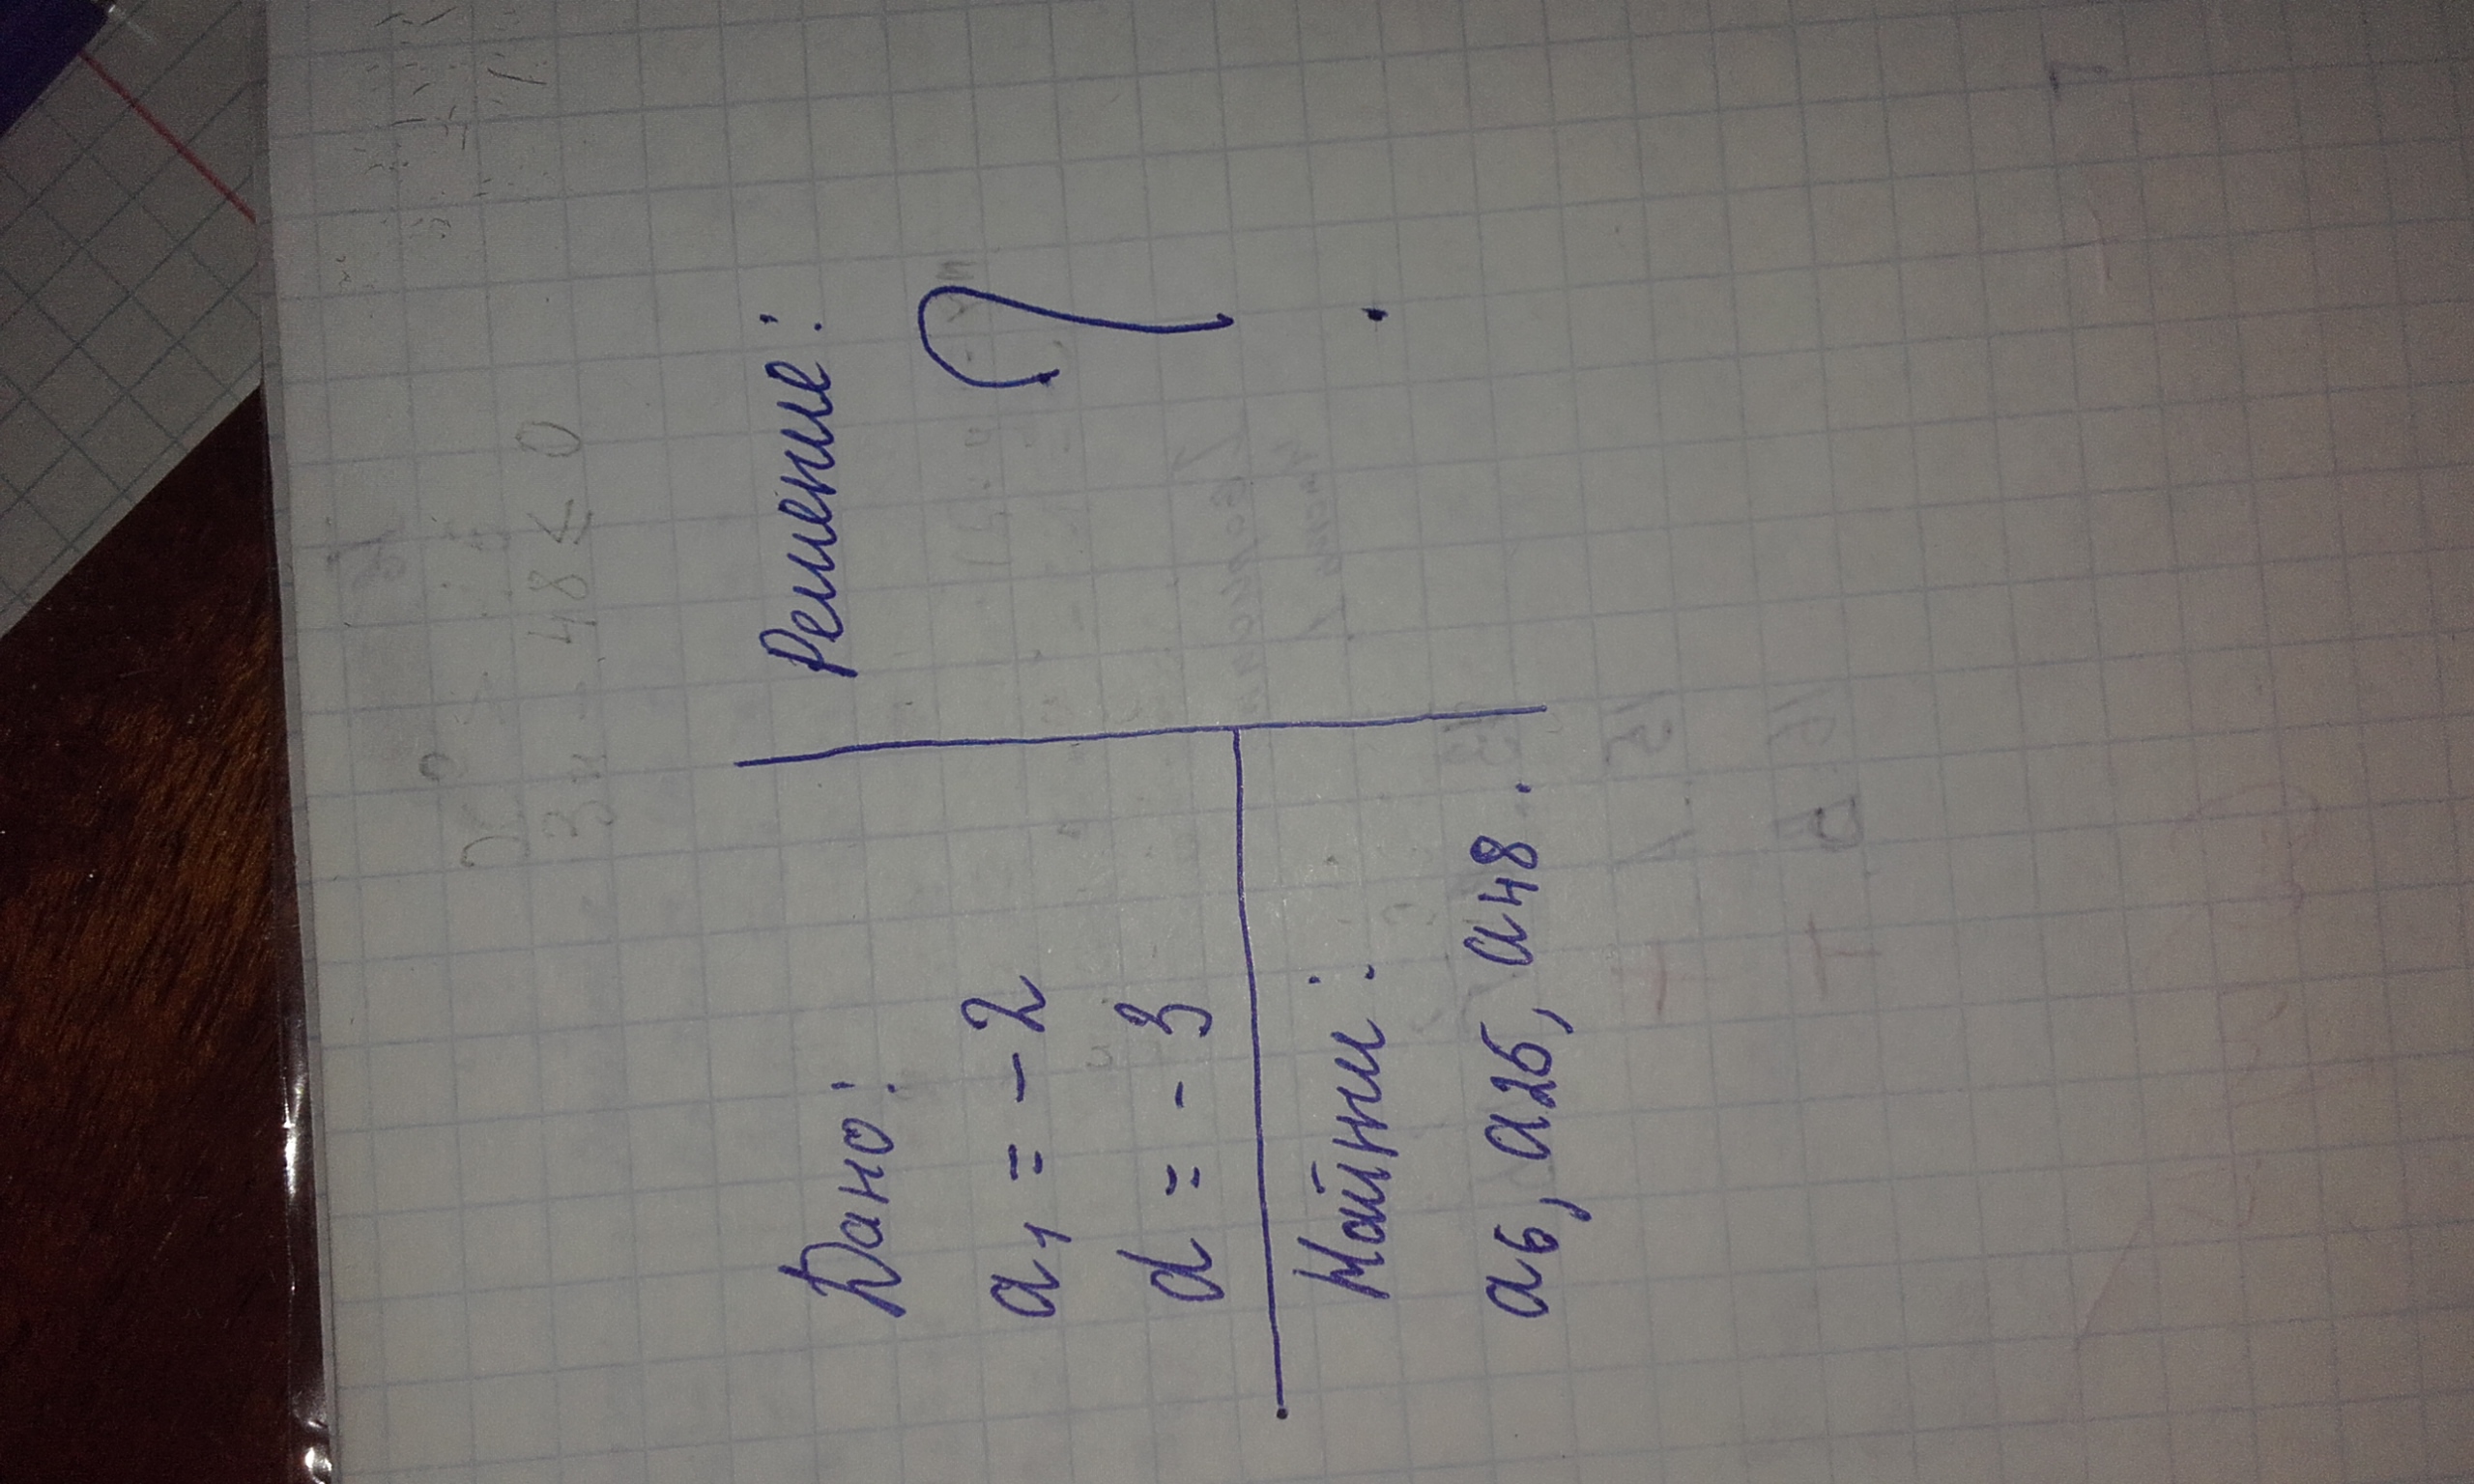 Дано:
a₁ = -2
d = -3
Найти:
a₆, a₂₆, a₄₈.
Решение:
?
3x - 48 ≤ 0